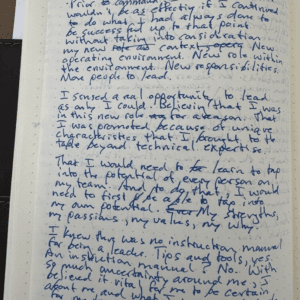 Prior to
wouldn't be as effective if I continued
to do what I had always done to
be successful up to that point
without taking into consideration
my new context. New
operating environment. New role within
the environment. New responsibilities.
More people to lead.
I sensed a real opportunity to lead
as only I could. Believing that I was
in this new role for a reason. That
I was promoted because of unique
characteristics that I brought to the
table beyond technical expertise.
That I would need to learn to tap
into the potential of every person on
my team. And to do that, I would
need to first be able to tap into
my own potential. My strengths,
my passions, my values, my why.
I knew there was no instruction manual
for being a leader. Tips and tools, yes.
An instruction manual? No. With
so much uncertainty around me, I
believed it vital for me to be certain
about me and what I